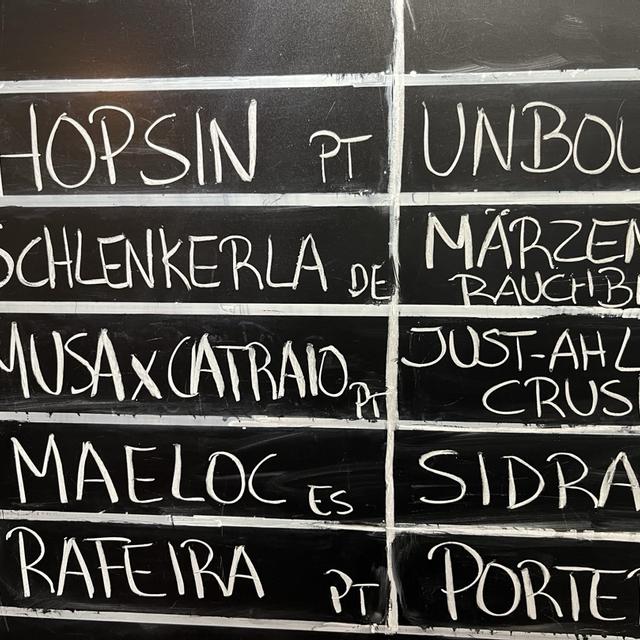 HOPSIN PT UNBOU
SCHLENKERLA DE MÄRZEN
RAUCHB
MUSA X CATRAIO PT JUST-AHL
CRUS
MAELOC ES SIDRA
RAFEIRA PT PORTE